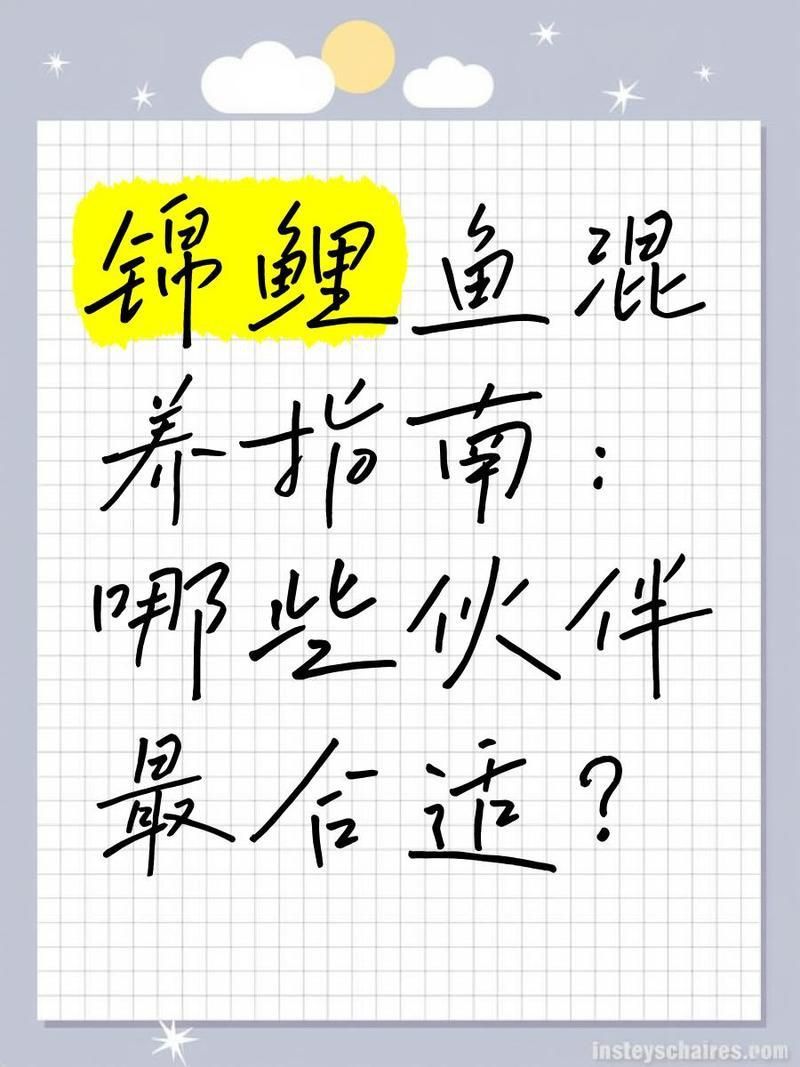 锦鲤鱼混
养指南：
哪些伙伴
最合适？
insteyschaires.com